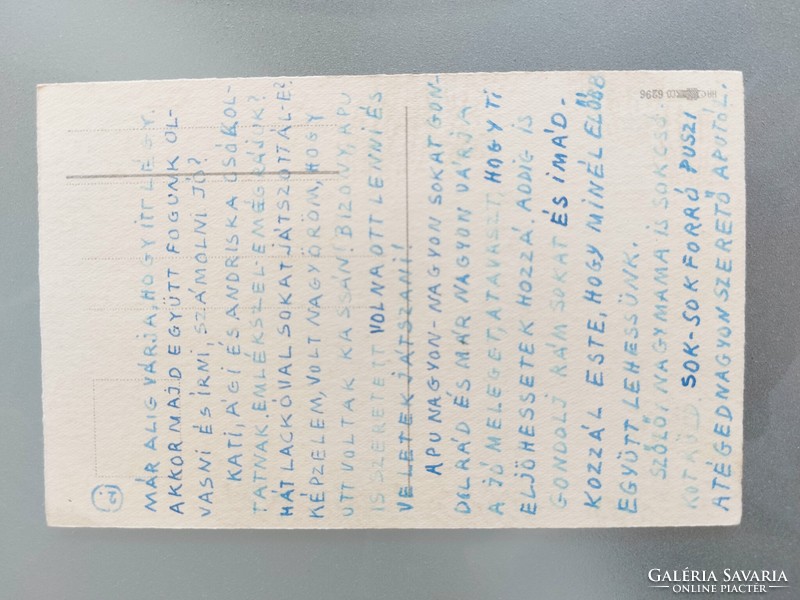 2)
MÁR ALIG VÁRJA, HOGY ITT LÉGY.
AKKOR MAJD EGYÜTT FOGUNK OL-
VASNI ÉS ÍRNI, SZÁMOLNI. JÓ?
KATI, ÁGI ÉS ANDRISKA CSÓKOL-
TATNAK. EMLÉKSZEL-E MÉG RÁJUK?
HÁT LACKÓVAL SOKAT JÁTSZOTTÁL-E?
KÉPZELEM, VOLT NAGY ÖRÖM, HOGY
OTT VOLTAK KASSÁN! BIZONY, APU
IS SZERETETT VOLNA OTT LENNI ÉS
VELETEK JÁTSZANI!
APU NAGYON-NAGYON SOKAT GON-
DOL RÁD ÉS MÁR NAGYON VÁRJA
A JÓ MELEGET, A TAVASZT, HOGY TI
ELJÖHESSETEK HOZZÁ. ADDIG IS
GONDOLJ RÁM SOKAT ÉS IMÁD-
KOZZÁL ESTE, HOGY MINÉL ELŐBB
EGYÜTT LEHESSÜNK.
SZÖLŐI NAGYMAMA IS SOK CSÓ-
KOT KÜLD. SOK-SOK FORRÓ PUSZI
A TÉGED NAGYON SZERETŐ APUTÓL.
6296
GALÉRIA SAVARIA
ONLINE PIACTÉR